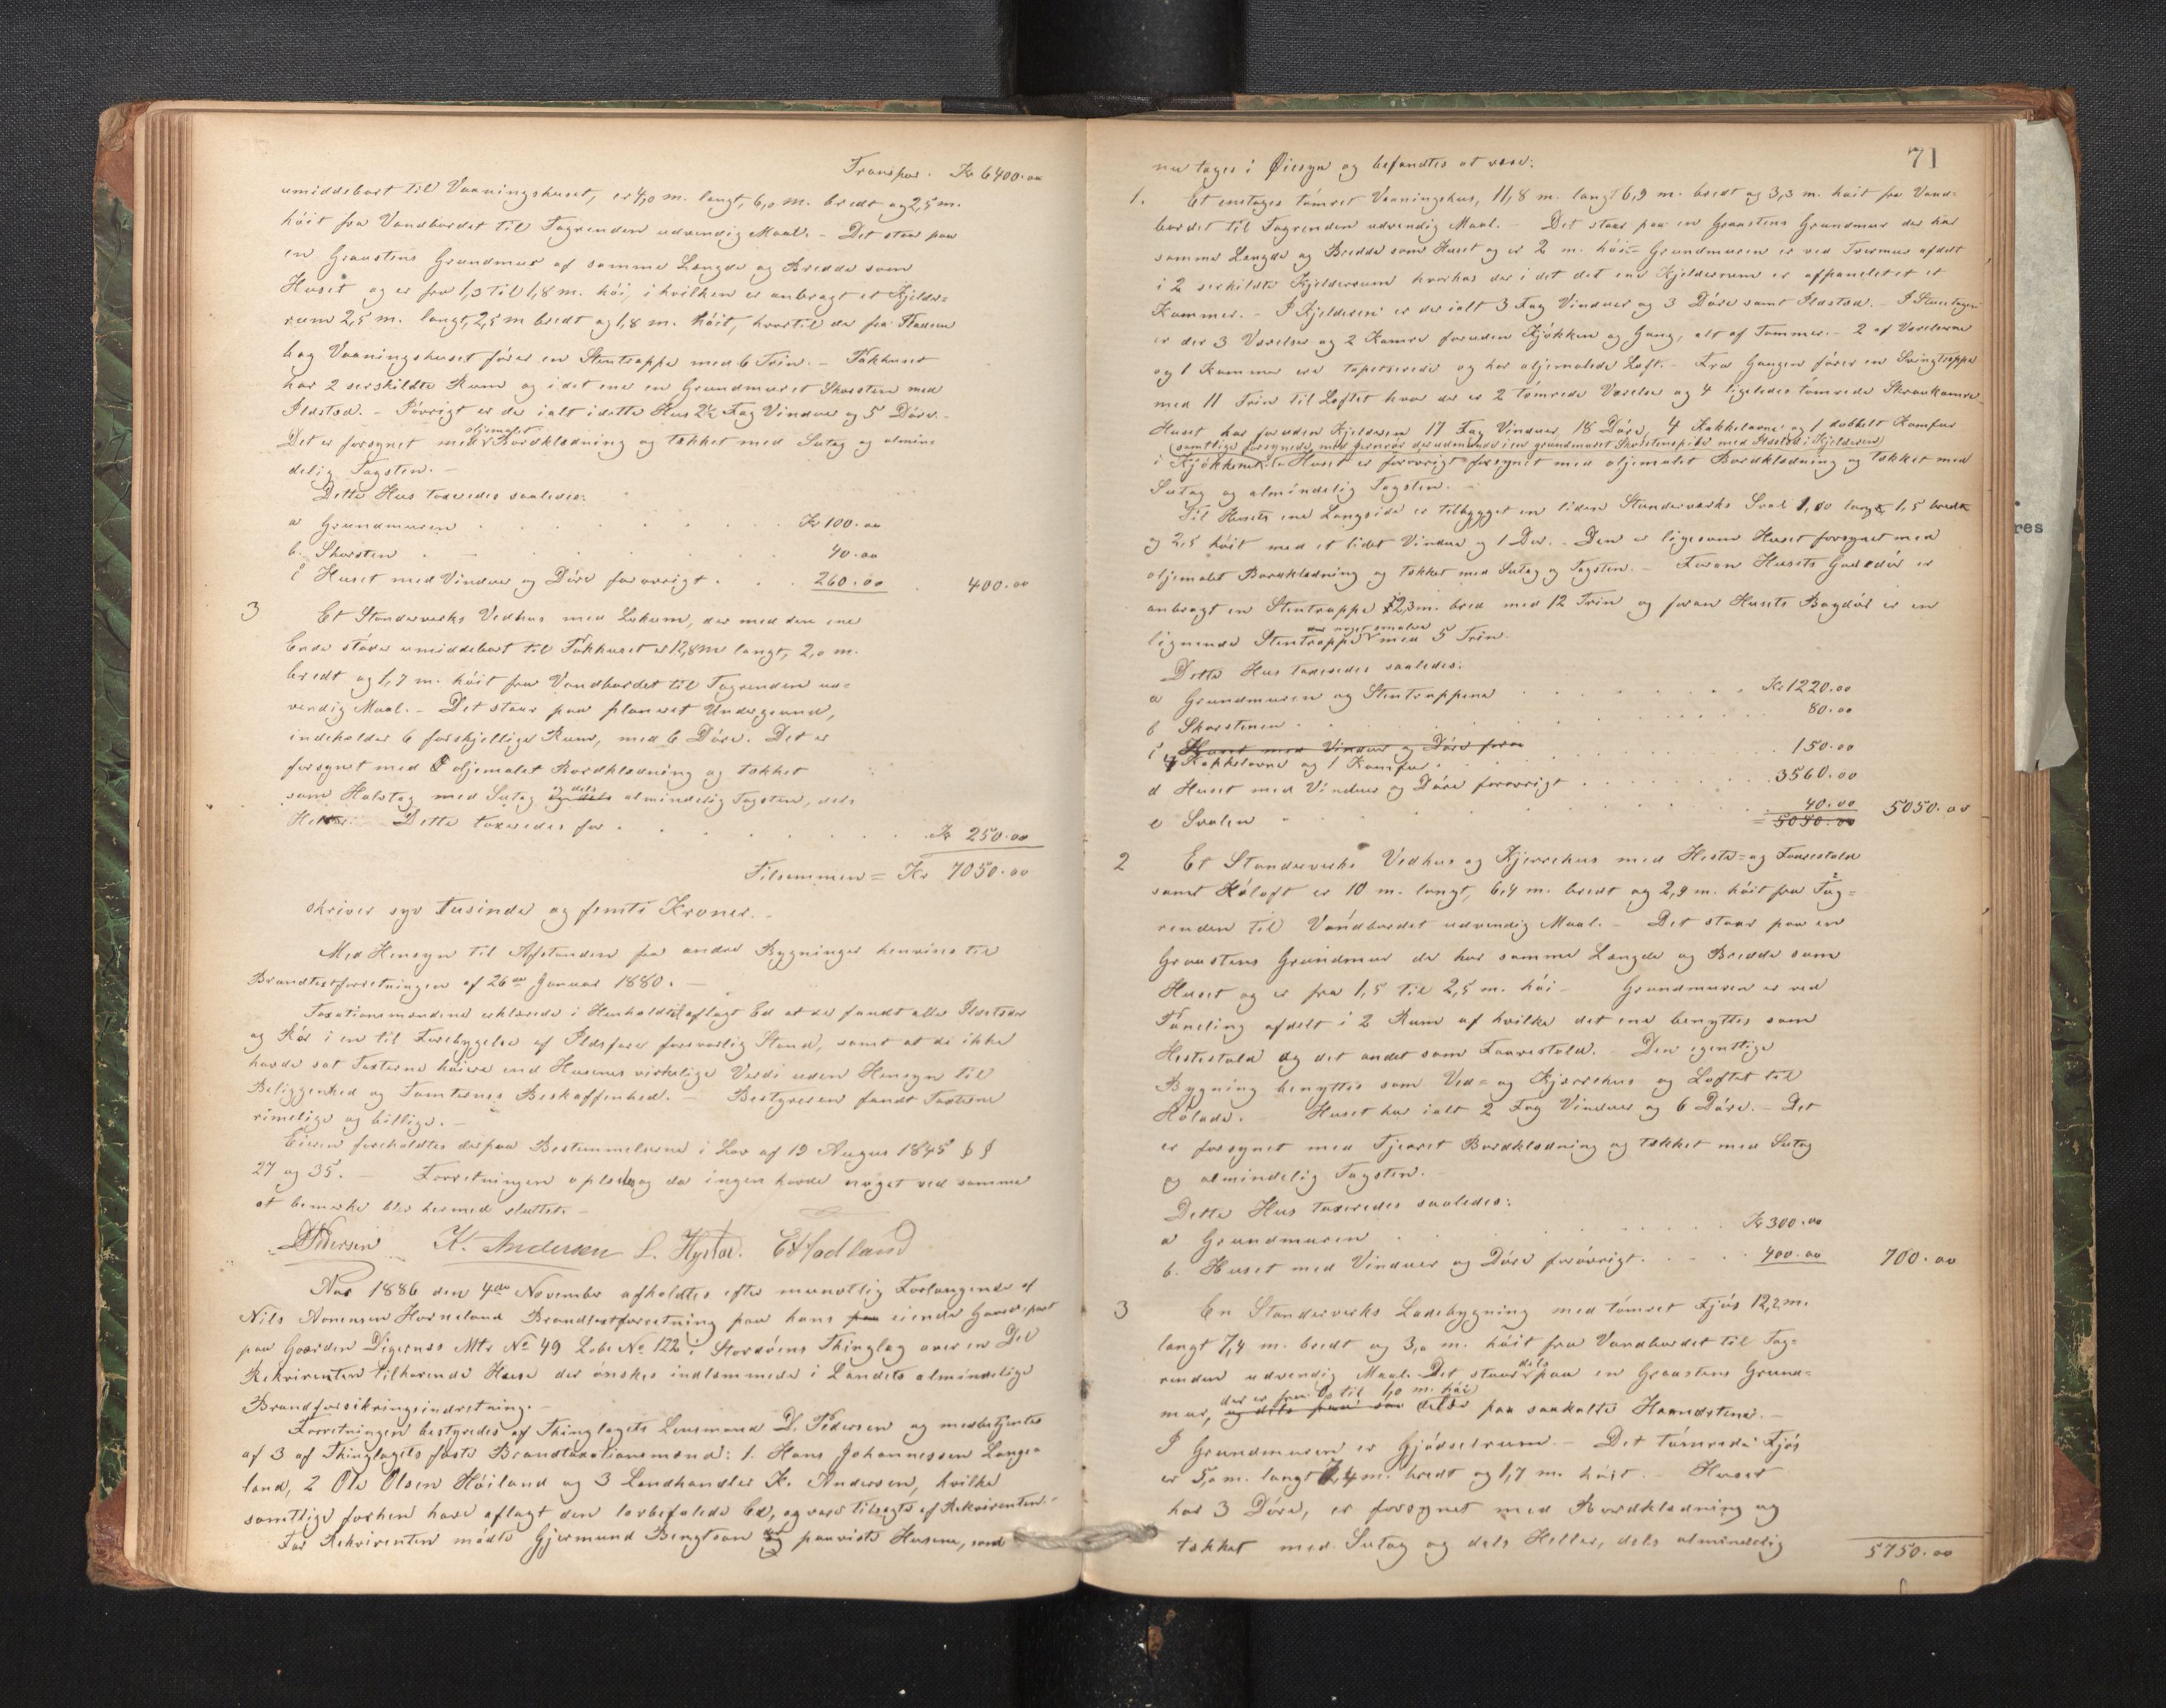 Transpor. Kr 6400.00
umiddelbart til Vaaningshuset, er 4,0 m. langt, 6,0 m. bredt og 2,5 m.
höit fra Vandbordet til Tagrenden udvendig Maal. – Det staar paa
en Graastens Grundmur af samme Længde og Bredde som
Huset og er fra 1,3 til 1,8 m. höi, i hvilken er anbragt et Kjelder=
rum 2,5 m. langt, 2,5 m bredt og 1,8 m. höit, hvortil der fra
bag Vaaningshuset förer en Stentrappe med 6 Trin. –
har 2 serskildte Rum og i det ene en Grundmuret Skorsten med
Ildsted. – Iövrigt er der ialt i dette Hus 2½ Fag Vinduer og 5 Döre. –
Det er forsynet med oljemalet Bordklædning og tækket med Sutag og almin=
delig Tagsten. –
Dette Hus taxeredes saaledes:
a Grundmuren Kr 100.00
b. Skorsten 40.00
c Huset med Vinduer og Döre forövrigt 260.00 400.00
3 Et Standerverks Vedhus med Lokum, der med den ene
Ende stöder umiddelbart til er 12,8 m langt, 2,0 m.
bredt og 1,7 m. höit fra Vandbordet til Tagrenden ud=
vendig Maal. – Det staar paa planeret Undergrund,
indeholder 6 forskjellige Rum, med 6 Döre. Det er
forsynet med oljemalet Bordklædning og tækket
som Halvtag med Sutag og dels almindelig Tagsten, dels
Heller. Dette taxeredes for Kr 250.00
Tilsammen = Kr 7050.00
skriver syv tusinde og femti Kroner. –
Med Hensyn til Afstanden fra andre Bygninger henvises til
Brandtaxtforretningen af 26de Januar 1880. –
Taxationsmændene erklærede i Henhold til aflagt Ed at de fandt alle Ildsteder
og Rör i en til Forebygelse af Ildsfare forsvarlig Stand, samt at de ikke
havde sat Taxterne höiere end Husenes virkelige Verdi uden Hensyn til
Beliggenhed og Tomternes Beskaffenhed. – Bestyreren fandt Taxterne
rimelige og billige. –
Eieren foreholdtes derpaa Bestemmelserne i Lov af 19 August 1845 § §
27 og 35. – Forretningen oplæstes og da ingen havde noget ved samme
at bemærke blev hermed sluttet. –
D Pedersen K. Andersen L. Hystad. E Hadland
Aar 1886 den 4de November afholdtes efter mundtlig Forlangende af
Nils Monsensen Horneland Brandtaxtforretning paa hans eiende Gaardspart
paa Gaarden Digernes Mtr No 49 Löbe No 122 i Stordöens Thinglag over en Del
Rekvirenten tilhörende Huse der önskes indlemmede i Landets almindelige
Brandforsikringsindretning. –
Forretningen bestyredes af Thinglagets Lensmand D. Pedersen og medbetjentes
af 3 af Thinglagets faste Brandtaxationsmænd: 1. Hans Johannessen Lange=
land, 2 Ole Olsen Höiland og 3 Landhandler K. Andersen, hvilke
samtlige forhen have aflagt den lovbefalede Ed, og vare tilsagte af Rekvirenten. –
For Rekvirenten mödte Gjermund Bengtson og paaviste Husene, som
71
nu toges i Öiesyn og befandtes at være:
1. Et enetages tömret Vaaningshus, 11,8 m. langt 6,9 m. bredt og 3,3 m. höit fra Vand=
bordet til Tagrenden udvendig Maal. – Det staar paa en Graastens Grundmur der har
samme Længde og Bredde som Huset og er 2 m. höi. – Grundmuren er ved Tvermur afdelt
i 2 serskildte Kjelderrum hvorhos der i det det ene Kjelderrum er afpanelet et
Kammer. – I Kjelderen er der ialt 3 Fag Vinduer og 3 Döre samt Ildsted. – I Stueetagen
er der 3 Værelser og 2 Kamre foruden Kjökken og Gang, alt af Tömmer. – 2 af Værelserne
og 1 Kammer ere tapetserede og har oljemalede Loft. – Fra Gangen förer en Svingtrappe
med 11 Trin til Loftet hvor der er 2 tömrede Værelser og 4 ligeledes tömrede Skraakamre. –
Huset har foruden Kjelderen 17 Fag Vinduer, 18 Döre, 4 Kakkelovne og 1 dobbelt Komfur
(samtlige forsynede med Jernrör der udmunde i en grundmuret Skorstenspibe med Ildsted i Kjelderen)
i Kjökkenet. – Huset er forövrigt forsynet med oljemalet Bordklædning og tækket med
Sutag og almindelig Tagsten. –
Til Husets ene Langside er tilbygget en liden Standerværks Sval 1,80 langt, 1,5 bredt
og 2,5 höit med et lidet Vindue og 1 Dör. – Den er ligesom Huset forsynet med
oljemalet Bordklædning og tækket med Sutag og Tagsten. – Foran Husets er
anbragt en Stentrappe 2,3 m. bred med 12 Trin og foran Husets Bagdör er en
lignende Stentrappe noget smalere med 5 Trin.
Dette Hus taxeredes saaledes:
a Grundmuren og Stentrapperne Kr 1220.00
b Skorstenen 80.00
c Huset med Vinduer og Döre forö
4 Kakkelovne og 1 Komfur 150.00
d Huset med Vinduer og Döre forövrigt 3560.00
e Svalen 40.00 5050.00
5050.00
2 Et Standerverks Vedhus og Kjærrehus med Heste= og Faarestald
samt Höloft er 10 m. langt, 6,4 m. bredt og 2,9 m. höit fra Tag=
renden til Vandbordet udvendig Maal. – Det staar paa en
Graastens Grundmur der har samme Længde og Bredde som
Huset og er fra 1,5 til 2,5 m. höi – Grundmuren er ved
Paneling afdelt i 2 Rum af hvilke det ene benyttes som
Hestestald og det andet som Faarestald. – Den egentlige
Bygning benyttes som Ved= og Kjærrehus og Loftet til
Hölade. – Huset har ialt 2 Fag Vinduer og 6 Döre. – Det
er forsynet med Tjæret Bordklædning og tækket med Sutag
og almindelig Tagsten. –
Dette Hus taxeredes saaledes:
a Grundmuren Kr 300.00
b. Huset med Vinduer og Döre forövrigt. 400.00 700.00
3 En Standerverks Ladebygning med tömret Fjös 12,2 m.
langt 7,4 m. bredt og 3,0 m. höit fra Vandbordet til Tag=
renden udvendig Maal. Det staar dels paa en Graastens Grund=
der er fra til 1,0 m. höi
mur, og dels paa saakaldte Haandstene. –
I Grundmuren er Gjödselrum. – Det tömrede Fjös
er 5,0 m. langt 7,4 m. bredt og 1,7 m. höit. – Huset
har 3 Döre, er forsynet med Bordklædning og
tækket med Sutag og dels Heller, dels almindelig
5750.00
res